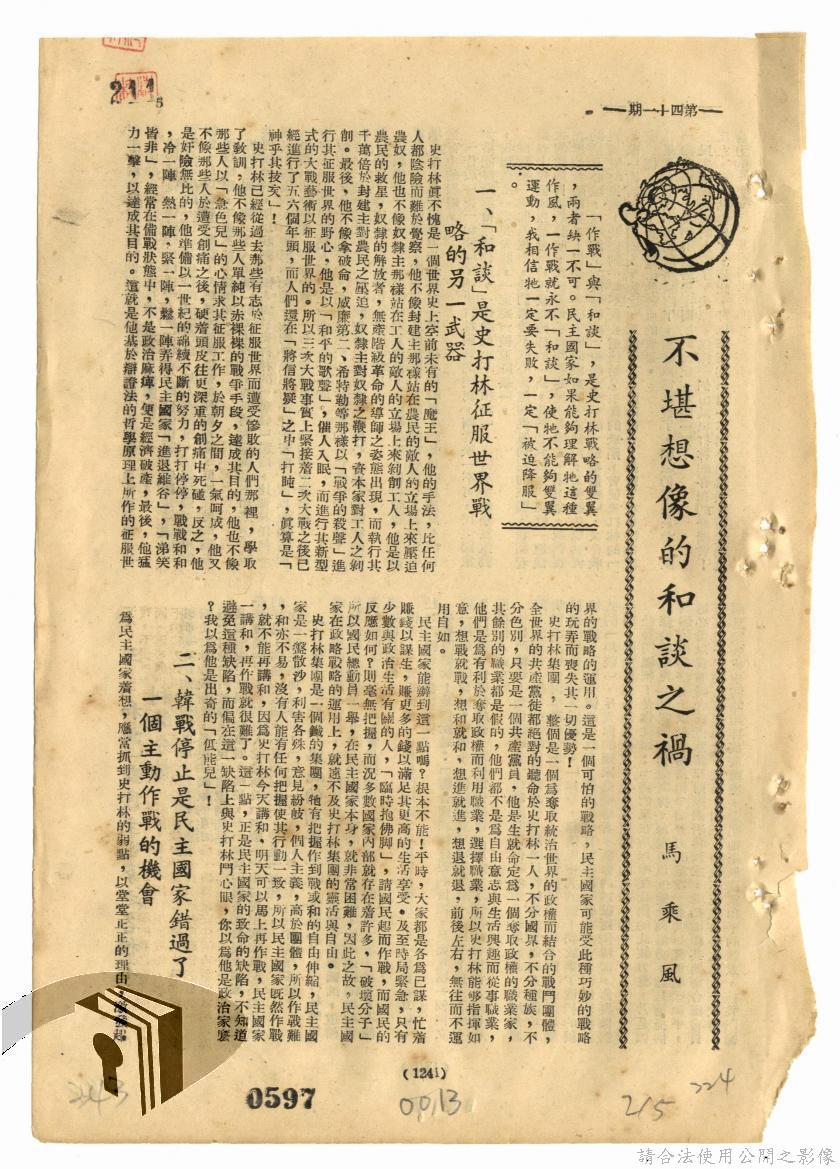 211
5
第四十一期
不堪想像的和談之禍
馬乘風
「作戰」與「和談」，是史打林戰略的雙翼
，兩者缺一不可。民主國家如果能夠理解牠這種
作風，一作戰就永不「和談」，使牠不能夠雙翼
運動，我相信牠一定要失敗，一定「被迫降服」
。
一、「和談」是史打林征服世界戰
略的另一武器
史打林眞不愧是一個世界史上空前未有的「魔王」，他的手法，比任何
人都陰險而難於覺察，他不像封建主那樣站在農民的敵人的立場上來壓迫
農奴，他也不像奴隸主那樣站在工人的敵人的立場上來剝削工人，他是以
農民的救星，奴隸的解放者，無產階級革命的導師之姿態出現，而執行其
千萬倍於封建主對農民之壓迫，奴隸主對奴隸之鞭打，資本家對工人之剝
削。最後，他不像拿破侖，威廉第二、希特勒等那樣以「戰爭的殺聲」進
行其征服世界的野心，他是以「和平的歌聲」，催人入眠，而進行其新型
式的大戰藝術以征服世界的。所以三次大戰事實上緊接着二次大戰之後已
經進行了五六個年頭，而人們還在「將信將疑」之中「打盹」，眞算是「
神乎其技矣」！
史打林已經從過去那些有志於征服世界而遭受慘敗的人們那裡，學取
了敎訓，他不像那些人單純以赤裸裸的戰爭手段，達成其目的，他也不像
那些人以「急色兒」的心情求其征服工作，於朝夕之間，一氣呵成，他又
不像那些人於遭受創痛之後，硬着頭皮往更深重的創痛中死碰，反之，他
是奸險無比的，他準備以一世紀的綿續不斷的努力，打打停停，戰戰和和
，冷一陣，熱一陣，緊一陣，鬆一陣弄得民主國家「進退維谷」，「涕笑
皆非」，經常在備戰狀態中，不是政治麻痺，便是經濟破產，最後，他猛
力一擊，以達成其目的。這就是他基於辯證法的哲學原理上所作的征服世
界的戰略的運用。這是一個可怕的戰略，民主國家可能受此種巧妙的戰略
的玩弄而喪失其一切優勢！
史打林集團，整個是一個爲奪取統治世界的政權而結合的戰鬥團體，
全世界的共產黨徒都絕對的聽命於史打林一人，不分國界，不分種族，不
分色別，只要是一個共產黨員，他是生就命定爲一個奪取政權的職業家，
其餘別的職業都是假的，他們都不是爲自由意志與生活興趣而從事職業，
他們是爲有利於奪取政權而利用職業，選擇職業，所以史打林能够指揮如
意，想戰就戰，想和就和，想進就進，想退就退，前後左右，無往而不運
用自如。
民主國家能辦到這一點嗎？根本不能！平時，大家都是各爲己謀，忙着
賺錢以謀生，賺更多的錢以滿足其更高的生活享受。及至時局緊急，只有
少數與政治生活有關的人，「臨時抱佛脚」，請國民起而作戰，而國民的
反應如何？則毫無把握，而况多數國家內部就存在着許多，「破壞分子」
所以國民總動員一舉，在民主國家本身，就非常困難，因此之故，民主國
家在政略戰略的運用上，就遠不及史打林集團的靈活與自由。
史打林集團是一個鐵的集團，牠有把握作到戰或和的自由伸縮，民主國
家是一盤散沙，利害各殊，意見紛岐，個人主義，高於團體，所以作戰難
，和亦不易，沒有人能有任何把握使其行動一致，所以民主國家旣然作戰
，就不能再講和，因爲史打林今天講和，明天可以馬上再作戰，民主國家
一講和，再作戰就很難了。這一點，正是民主國家的致命的缺陷，不知道
避免這種缺陷，而偏在這一缺陷上與史打林鬥心眼，你以爲他是政治家麽
？我以爲他是出奇的「低能兒」！
二、韓戰停止是民主國家錯過了
一個主動作戰的機會
爲民主國家着想，應當抓到史打林的弱點，以堂堂正正的理由，
(1241)
243
0597
0013
215
224
請合法使用公開之影像